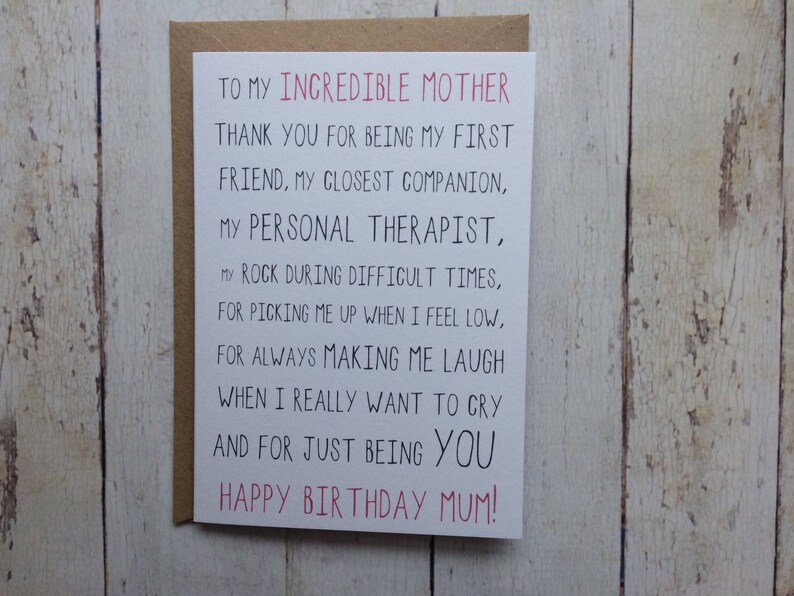 TO MY INCREDIBLE MOTHER
THANK YOU FOR BEING MY FIRST
FRIEND, MY CLOSEST COMPANION,
MY PERSONAL THERAPIST,
MY ROCK DURING DIFFICULT TIMES,
FOR PICKING ME UP WHEN I FEEL LOW,
FOR ALWAYS MAKING ME LAUGH
WHEN I REALLY WANT TO CRY
AND FOR JUST BEING YOU
HAPPY BIRTHDAY MUM!